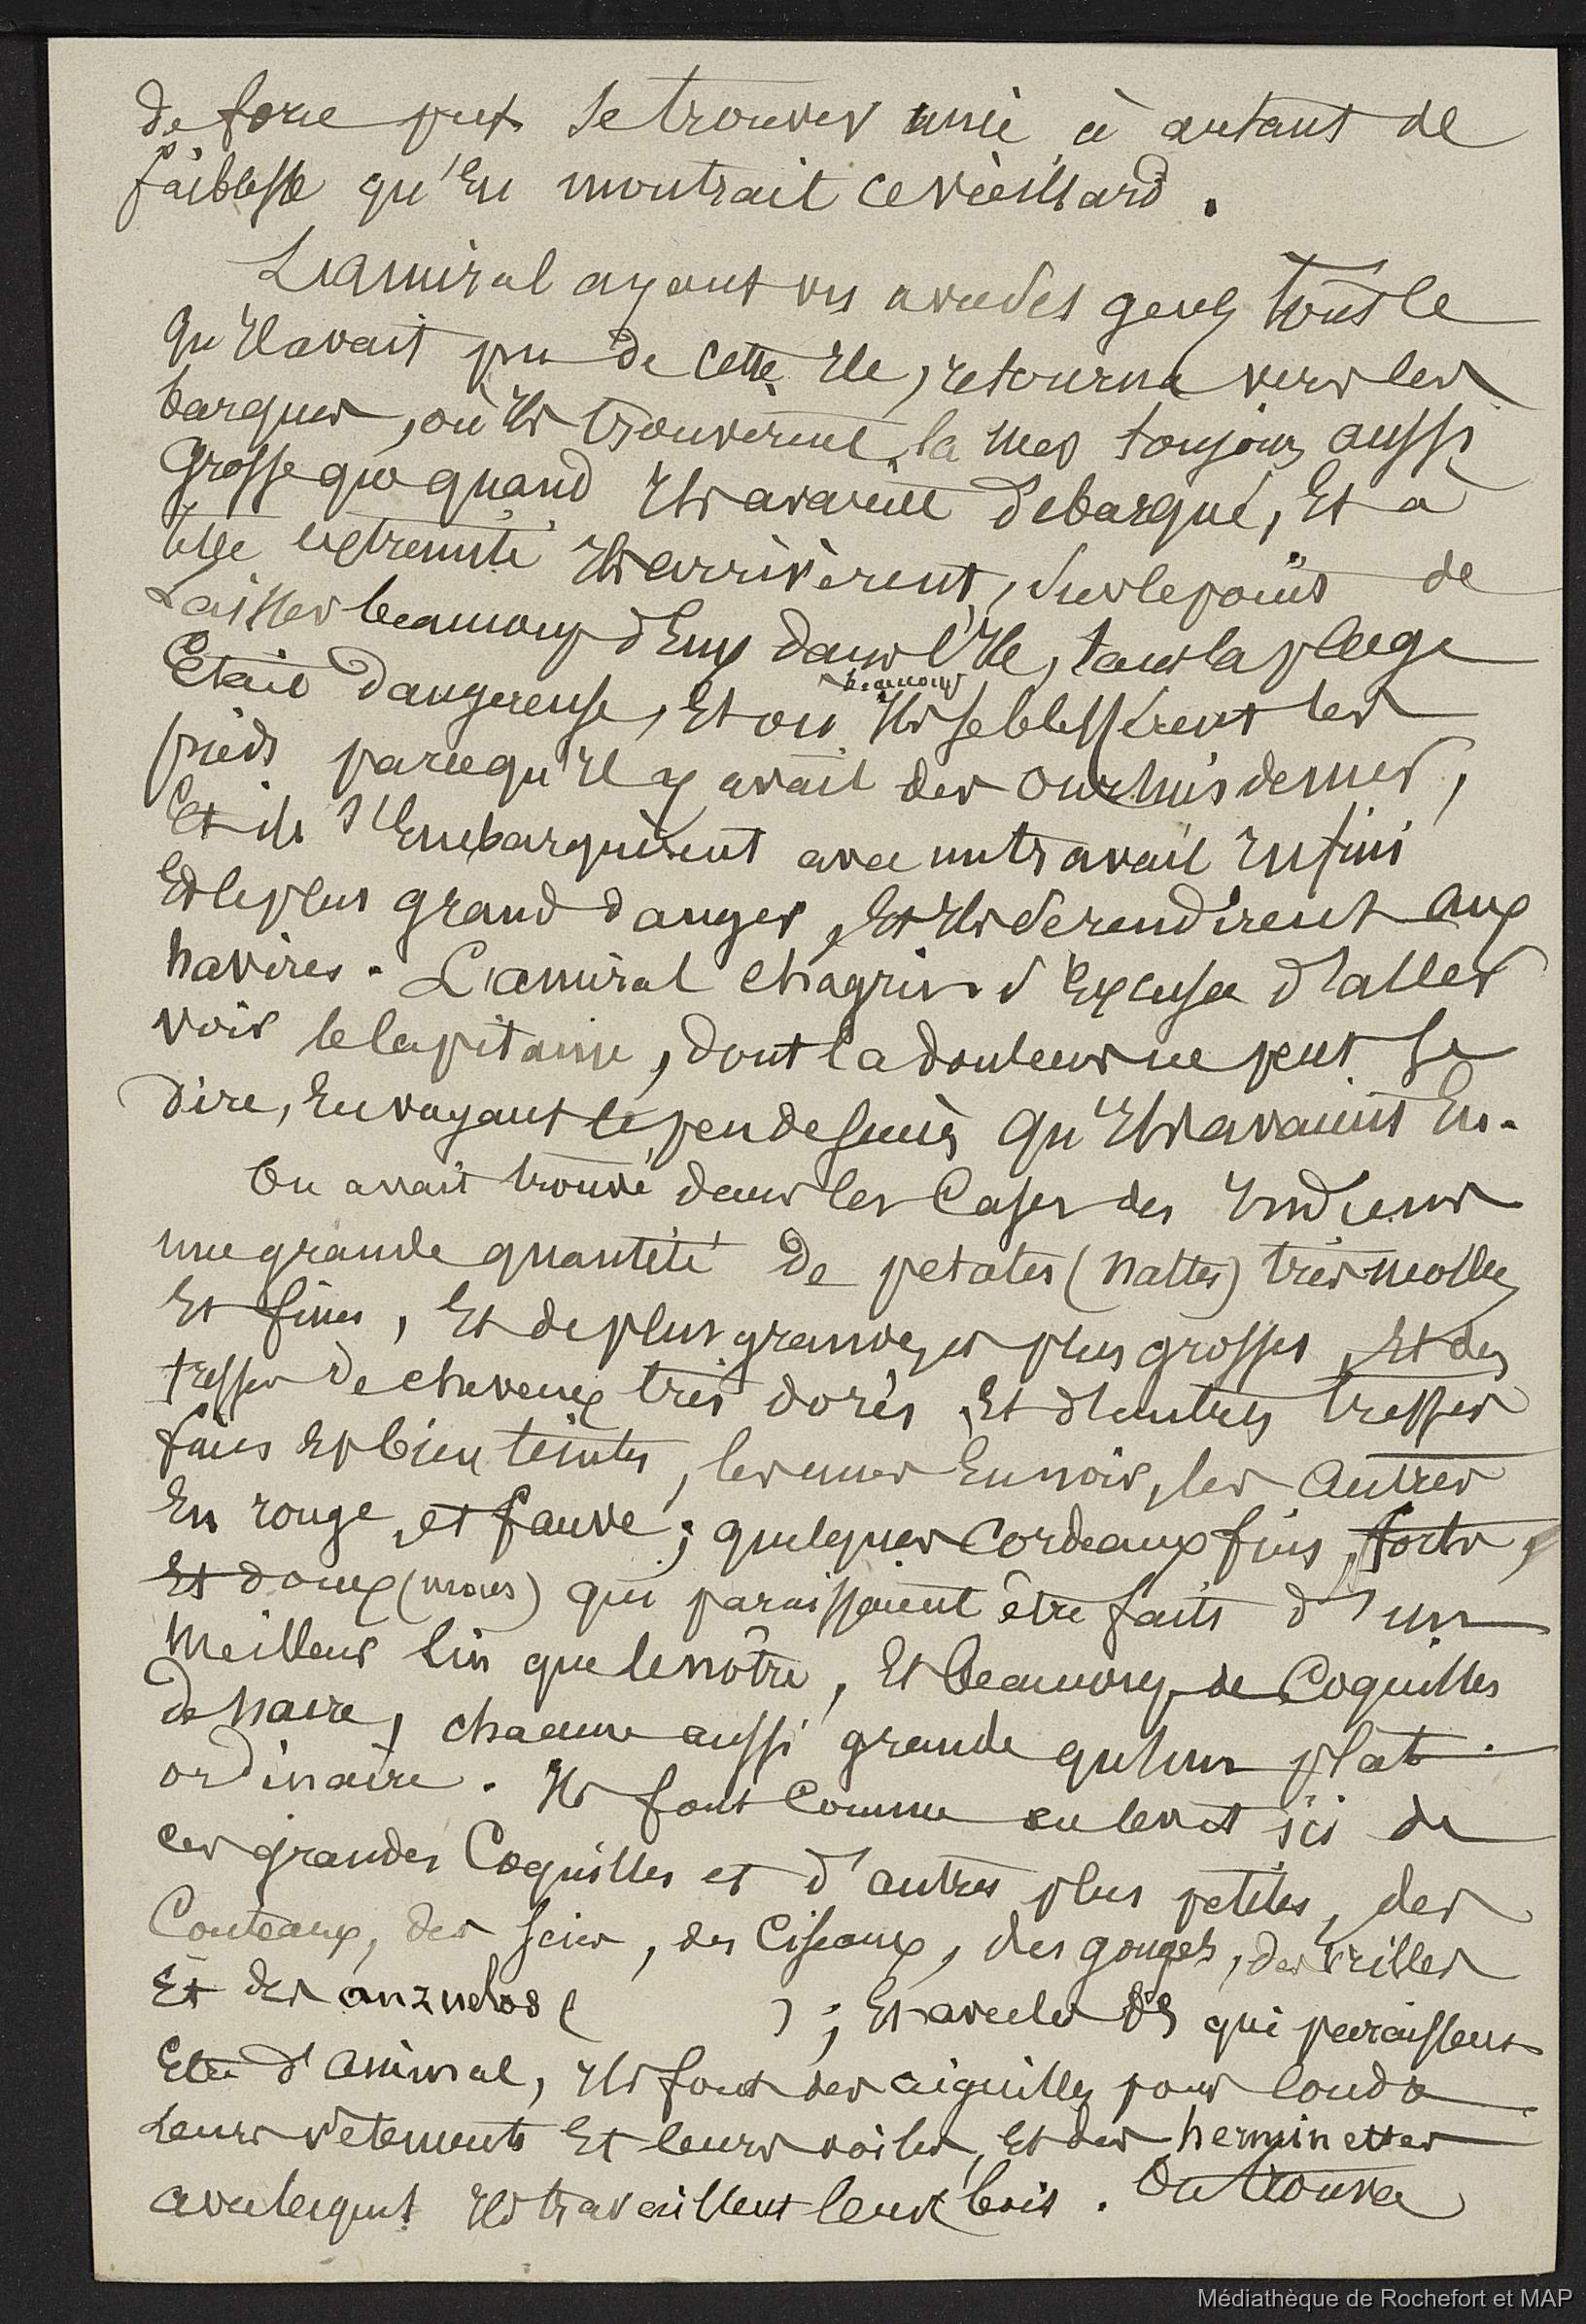 de force pût se trouver unie à autant de
faiblesse qu'en montrait ce vieillard.
L'amiral ayant vu avec des gens tout ce
qu'il avait pu de cette Ile, retourna vers les
barques, où ils trouvèrent la mer toujours aussi
grosse que quand ils avaient débarqué, Et à
telle extrémité ils arrivèrent, sur le point de
Laisser beaucoup d'Eux dans l'Ile, tant la plage
Etait dangereuse, Et où beaucoup ils se blessèrent les
pieds parcequ'il y avait des oursins de mer,
Et ils s'Embarquèrent avec un travail Infini
Et le plus grand danger, Et ils se rendirent aux
navires. L'amiral chagrin s'Excusa d'aller
voir le Capitaine, dont la douleur ne peut se
dire, En voyant le peu de succès qu'ils avaient Eu.
On avait trouvé dans les Cases des Indiens
une grande quantité de petates (nattes) très molles
Et fines, Et de plus grandes et plus grosses, Et des
tresses de cheveux très dorés, Et d'autres tresses
fines Et bien teintes, les unes En noir, les Autres
En rouge et fauve; quelques Cordeaux fins, forts,
Et doux (mous) qui paraissaient être faits d'un
Meilleur lin que le nôtre, Et beaucoup de Coquilles
de nacre, chacune aussi grande qu'un plat
ordinaire. Ils font Comme on le vit ici de
ces grandes Coquilles et d'autres plus petites, des
Couteaux, des scies, des Ciseaux, des gouges, des vrilles
Et des anzuelos ( ); Et avec les os qui paraissent
Etre d'Animal, ils font des aiguilles pour Coudre
Leurs vetements Et leurs voiles, Et des herminettes
avec lesquels ils travaillent leur bois. On trouva
Médiathèque de Rochefort et MAP